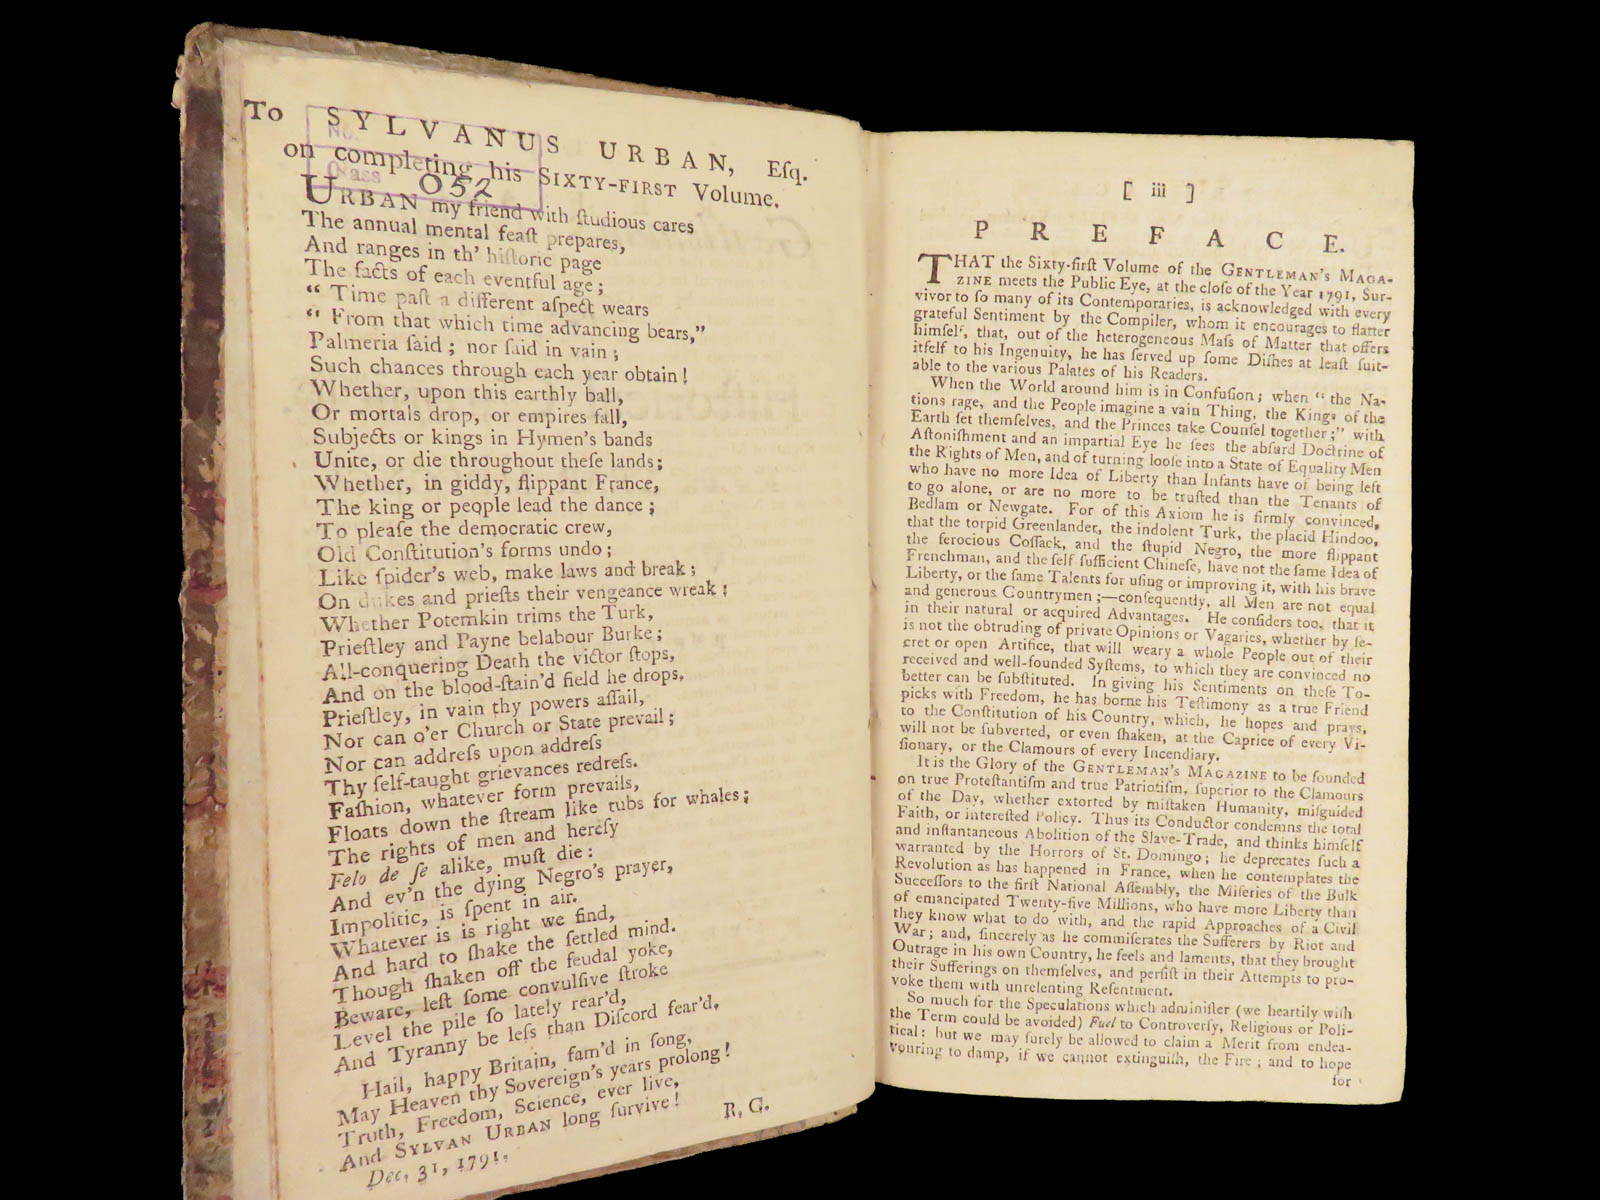 To SYLVANUS URBAN, Eſq.
on completing his SIXTY-FIRST Volume.
No.
Class 052
URBAN my friend with ſtudious cares
The annual mental feaſt prepares,
And ranges in th' hiſtoric page
The facts of each eventful age;
“ Time paſt a different aſpect wears
“ From that which time advancing bears,”
Palmeria ſaid; nor ſaid in vain;
Such chances through each year obtain!
Whether, upon this earthly ball,
Or mortals drop, or empires fall,
Subjects or kings in Hymen's bands
Unite, or die throughout theſe lands;
Whether, in giddy, flippant France,
The king or people lead the dance;
To pleaſe the democratic crew,
Old Conſtitution's forms undo;
Like ſpider's web, make laws and break;
On dukes and prieſts their vengeance wreak;
Whether Potemkin trims the Turk,
Prieſtley and Payne belabour Burke;
All-conquering Death the victor ſtops,
And on the blood-ſtain'd field he drops,
Prieſtley, in vain thy powers aſſail,
Nor can o'er Church or State prevail;
Nor can addreſs upon addreſs
Thy ſelf-taught grievances redreſs.
Faſhion, whatever form prevails,
Floats down the ſtream like tubs for whales;
The rights of men and hereſy
Felo de ſe alike, muſt die:
And ev'n the dying Negro's prayer,
Impolitic, is ſpent in air.
Whatever is is right we find,
And hard to ſhake the ſettled mind.
Though ſhaken off the feudal yoke,
Beware, leſt ſome convulſive ſtroke
Level the pile ſo lately rear'd,
And Tyranny be leſs than Diſcord fear'd.
Hail, happy Britain, fam'd in ſong,
May Heaven thy Sovereign's years prolong!
Truth, Freedom, Science, ever live,
And SYLVAN URBAN long ſurvive!
R. G.
Dec. 31, 1791.
[ iii ]
PREFACE.
THAT the Sixty-firſt Volume of the GENTLEMAN's MAGA-
ZINE meets the Public Eye, at the cloſe of the Year 1791, Sur-
vivor to ſo many of its Contemporaries, is acknowledged with every
grateful Sentiment by the Compiler, whom it encourages to flatter
himſelf, that, out of the heterogeneous Maſs of Matter that offers
itſelf to his Ingenuity, he has ſerved up ſome Diſhes at leaſt ſuit-
able to the various Palates of his Readers.
When the World around him is in Confuſion; when “ the Na-
tions rage, and the People imagine a vain Thing, the Kings of the
Earth ſet themſelves, and the Princes take Counſel together;” with
Aſtoniſhment and an impartial Eye he ſees the abſurd Doctrine of
the Rights of Men, and of turning looſe into a State of Equality Men
who have no more Idea of Liberty than Infants have of being left
to go alone, or are no more to be truſted than the Tenants of
Bedlam or Newgate. For of this Axiom he is firmly convinced,
that the torpid Greenlander, the indolent Turk, the placid Hindoo,
the ferocious Coſſack, and the ſtupid Negro, the more flippant
Frenchman, and the ſelf ſufficient Chineſe, have not the ſame Idea of
Liberty, or the ſame Talents for uſing or improving it, with his brave
and generous Countrymen;—conſequently, all Men are not equal
in their natural or acquired Advantages. He conſiders too, that it
is not the obtruding of private Opinions or Vagaries, whether by ſe-
cret or open Artifice, that will weary a whole People out of their
received and well-founded Syſtems, to which they are convinced no
better can be ſubſtituted. In giving his Sentiments on theſe To-
picks with Freedom, he has borne his Teſtimony as a true Friend
to the Conſtitution of his Country, which, he hopes and prays,
will not be ſubverted, or even ſhaken, at the Caprice of every Vi-
ſionary, or the Clamours of every Incendiary.
It is the Glory of the GENTLEMAN's MAGAZINE to be founded
on true Proteſtantiſm and true Patriotiſm, ſuperior to the Clamours
of the Day, whether extorted by miſtaken Humanity, miſguided
Faith, or intereſted Policy. Thus its Conductor condemns the total
and inſtantaneous Abolition of the Slave-Trade, and thinks himſelf
warranted by the Horrors of St. Domingo; he deprecates ſuch a
Revolution as has happened in France, when he contemplates the
Succeſſors to the firſt National Aſſembly, the Miſeries of the Bulk
of emancipated Twenty-five Millions, who have more Liberty than
they know what to do with, and the rapid Approaches of a Civil
War; and, ſincerely as he commiſerates the Sufferers by Riot and
Outrage in his own Country, he feels and laments, that they brought
their Sufferings on themſelves, and perſiſt in their Attempts to pro-
voke them with unrelenting Reſentment.
So much for the Speculations which adminiſter (we heartily wiſh
the Term could be avoided) Fuel to Controverſy, Religious or Poli-
tical: but we may ſurely be allowed to claim a Merit from endea-
vouring to damp, if we cannot extinguiſh, the Fire; and to hope
for